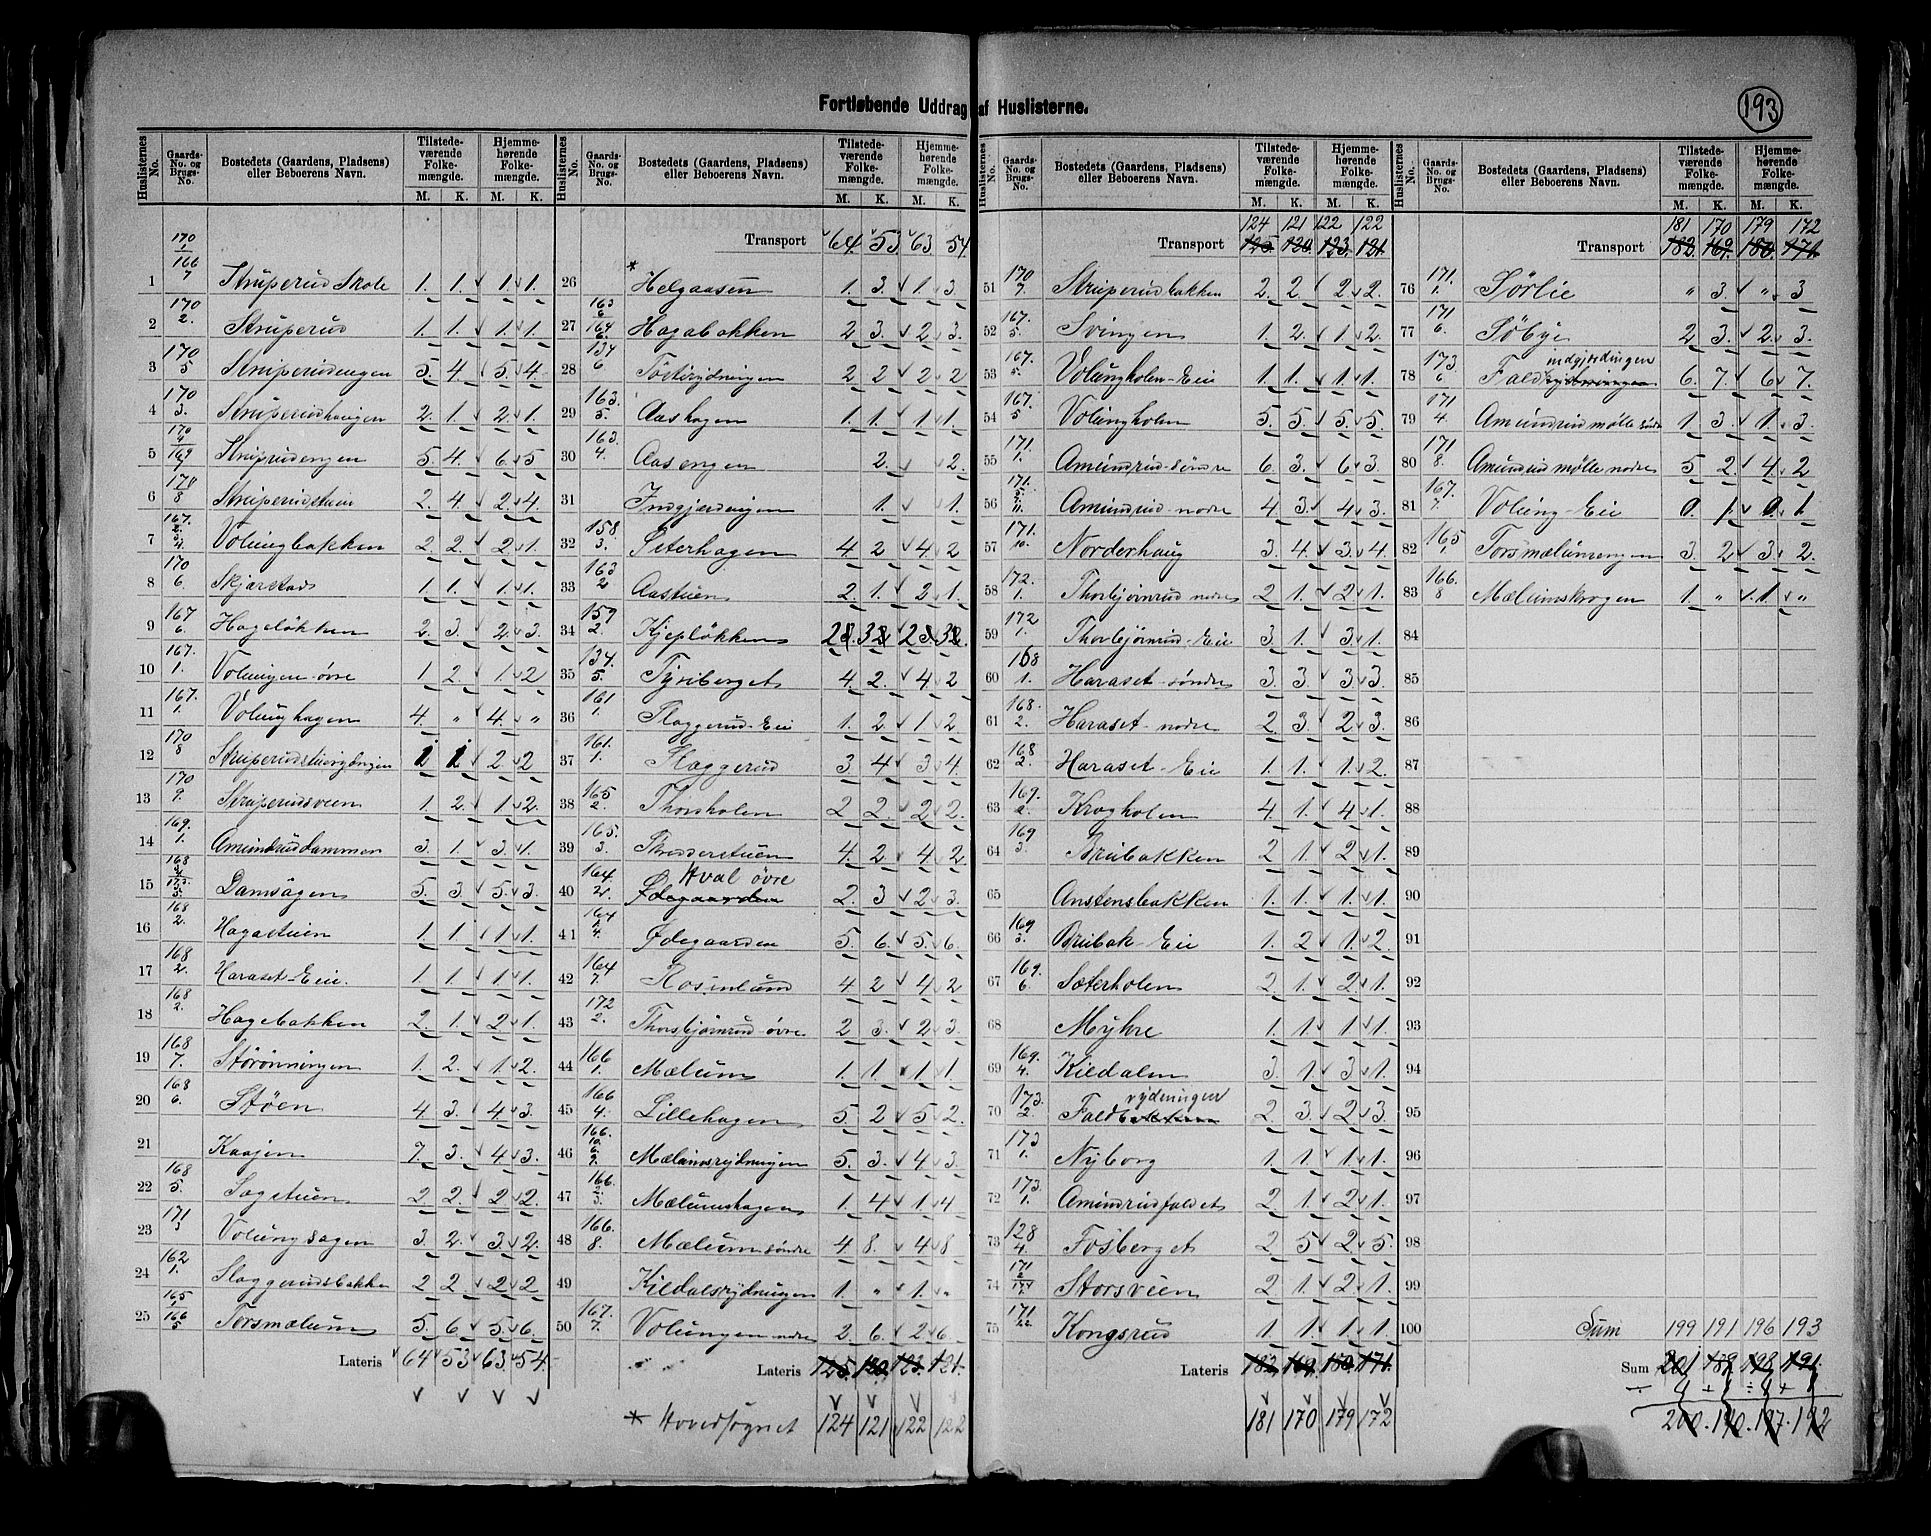 Fortløbende Uddrag af Huslisterne.
193
Huslisternes No. Gaards-No. og Brugs-No. Bostedets (Gaardens, Pladsens) eller Beboerens Navn. Tilstedeværende Folkemængde. M. K. Hjemmehørende Folkemængde. M. K.
1 170/1 166/7 Struperud Skole 1. 1. 1. 1.
2 170/2. Struperud 1. 1. 1. 1.
3 170/5 Struperudengen 5. 4. 5. 4.
4 170/3. Struperudhaugen 2. 1. 2. 1.
5 Struperudengen 5 4. 6. 5
6 170/8 2. 4. 2. 4.
7 Volungbakken 2. 2. 2. 1.
8 170/6. Skjarstad 1. 1. 1. 1.
9 167/6. Hageløkken 2. 3. 2. 3.
10 167./1. Volungen øvre 1 2. 1. 2
11 167./1. Volunghagen 4. " 4. "
12 170/8 1 1 2 2
13 170/9. Struperudsveen 1. 2. 1. 2.
14 169./1. Amundruddammen 3. 1. 3. 1.
15 Damsagen 5. 3 5. 3.
16 168/2. Hagastuen 1. 1. 1. 1.
17 168/2. Haraset-Eie. 1. 1. 1. 1.
18 168/2. Hagebakken 2. 1. 2. 1.
19 168/7. Størønningen 1. 2. 1. 2.
20 168/6. Støen 4. 3. 4. 3.
21 Kaajen 7. 3. 4. 3.
22 168/5. Sagstuen 2. 2. 2. 2.
23 171/3 Volungsagen 3. 2. 3. 2.
24 162/1. Slaggerudsbakken 2 2. 2. 2
25 165/1 166/5 Torsmælum 5. 6. 5. 6.
Lateris 64 53 63 54.
Transport 64. 53 63 54
26 * Helgaasen 1. 3. 1. 3.
27 163/6 164/6. Hagabakken 2 3. 2. 3.
28 134/6 Tostirydningen 2 2 2 2
29 163./5. Aashagen 1. 1. 1 1.
30 163./4. Aasengen 2. 2.
31 Indgjærdingen 1. 1.
32 158./3. Seterhagen 4. 2 4. 2
33 163/2 Aastuen 2. 1. 2 1.
34 159/2. Kjepløkken
35 134./5. Tyriberget 4. 2. 4. 2
36 161/1. Slaggerud-Eie 1. 2 1. 2
37 161./1. Slaggerud 3 4. 3 4.
38 165/2. Thorsholen 2 2. 2. 2.
39 165./3. 4. 2 4. 2.
40 164./2. Hval øvre Ødegaarden 2. 3 2. 3.
41 Ødegaarden 5. 6. 5. 6.
42 164/7. Rosenlund 4 2 4. 2
43 172/2. Thorsbjørnrud øvre 2 3. 2. 3.
44 166/1. Mælum 1. 1. 1. 1
45 166/4. Lillehagen 5. 2 5. 2.
46 Mælumsrydningen 5. 3. 4. 3.
47 Mælumshagen 1. 4 1. 4
48 166./8. Mælum søndre 4 8. 4. 8
49 Kildalsrydningen 1. " 1. "
50 167./7. Volungen nedre 2 6. 2. 6
Lateris 125. 120. 123. 121.
* Hovedsognet 124 121 122 122
124 121 122 122
Transport 125. 120. 123. 121.
51 170/7. Struperudbakken 2. 2. 2. 2.
52 167./5. Svingen 1. 2. 1. 2.
53 167./5. Volungholen-Eie 1. 1. 1. 1.
54 167./5 Volungholen 5. 5. 5. 5.
55 171./1. Amundrud-søndre 6. 3. 6. 3.
56 Amundrud-nodre 4. 3. 4. 3.
57 171./10. Norderhaug 3. 4. 3. 4.
58 172./1. Thorbjørnrud nodre 2 1. 2. 1.
59 172/1. Thorbjørnrud Eie 3. 1. 3. 1.
60 168/1. Haraset-søndre 3. 3. 3. 3.
61 168./2. Haraset-nodre 2. 3. 2. 3.
62 168/2. Haraset-Eie 1. 1. 1. 2.
63 169./2. Kragholen 4. 1. 4. 1.
64 169/3. Brubakken 2 1. 2. 1.
65 Anstensbakken 1. 1. 1. 1.
66 169/3. Brubak-Eie 1. 2 1. 2.
67 169./6. Sæterholen 2 1. 2. 1.
68 Myhre 1. 1. 1. 1.
69 169./4. Kildalen 3. 1. 3 1.
70 173./2. Faldbakken rydningen 2 3. 2. 3.
71 173/1. Nyborg 1. 1. 1. 1.
72 173./1. Amundrudfaldet 2 1. 2. 1.
73 128/4. Fosberget 2 5 2. 5.
74 Storsveen 2. 1. 2. 1.
75 171./22. Kongsrud 1. 1. 1. 1.
Lateris 182. 169. 180. 171.
181 170 179 172
181 170 179 172
Transport 182. 169. 180. 171
76 171./1. Sørlie " 3. " 3
77 171/6. Søbye 2 3. 2. 3.
78 173./6 Fald indgjærdingen 6. 7. 6. 7.
79 171/4 Amundrudmølle søndre 1. 3. 1. 3.
80 171/8. Amundrudmølle nodre 5 2. 4. 2
81 167/7. Volung-Eie 0. 1. 0. 1
82 165/1. Torsmælumengen 3. 2 3. 2.
83 166./8 Mælumskrogen 1. " 1. "
84
85
86
87
88
89
90
91
92
93
94
95
96
97
98
99
100 Sum 199 191 196 193
Sum 201 189 198 191.
200. 190. 197. 192